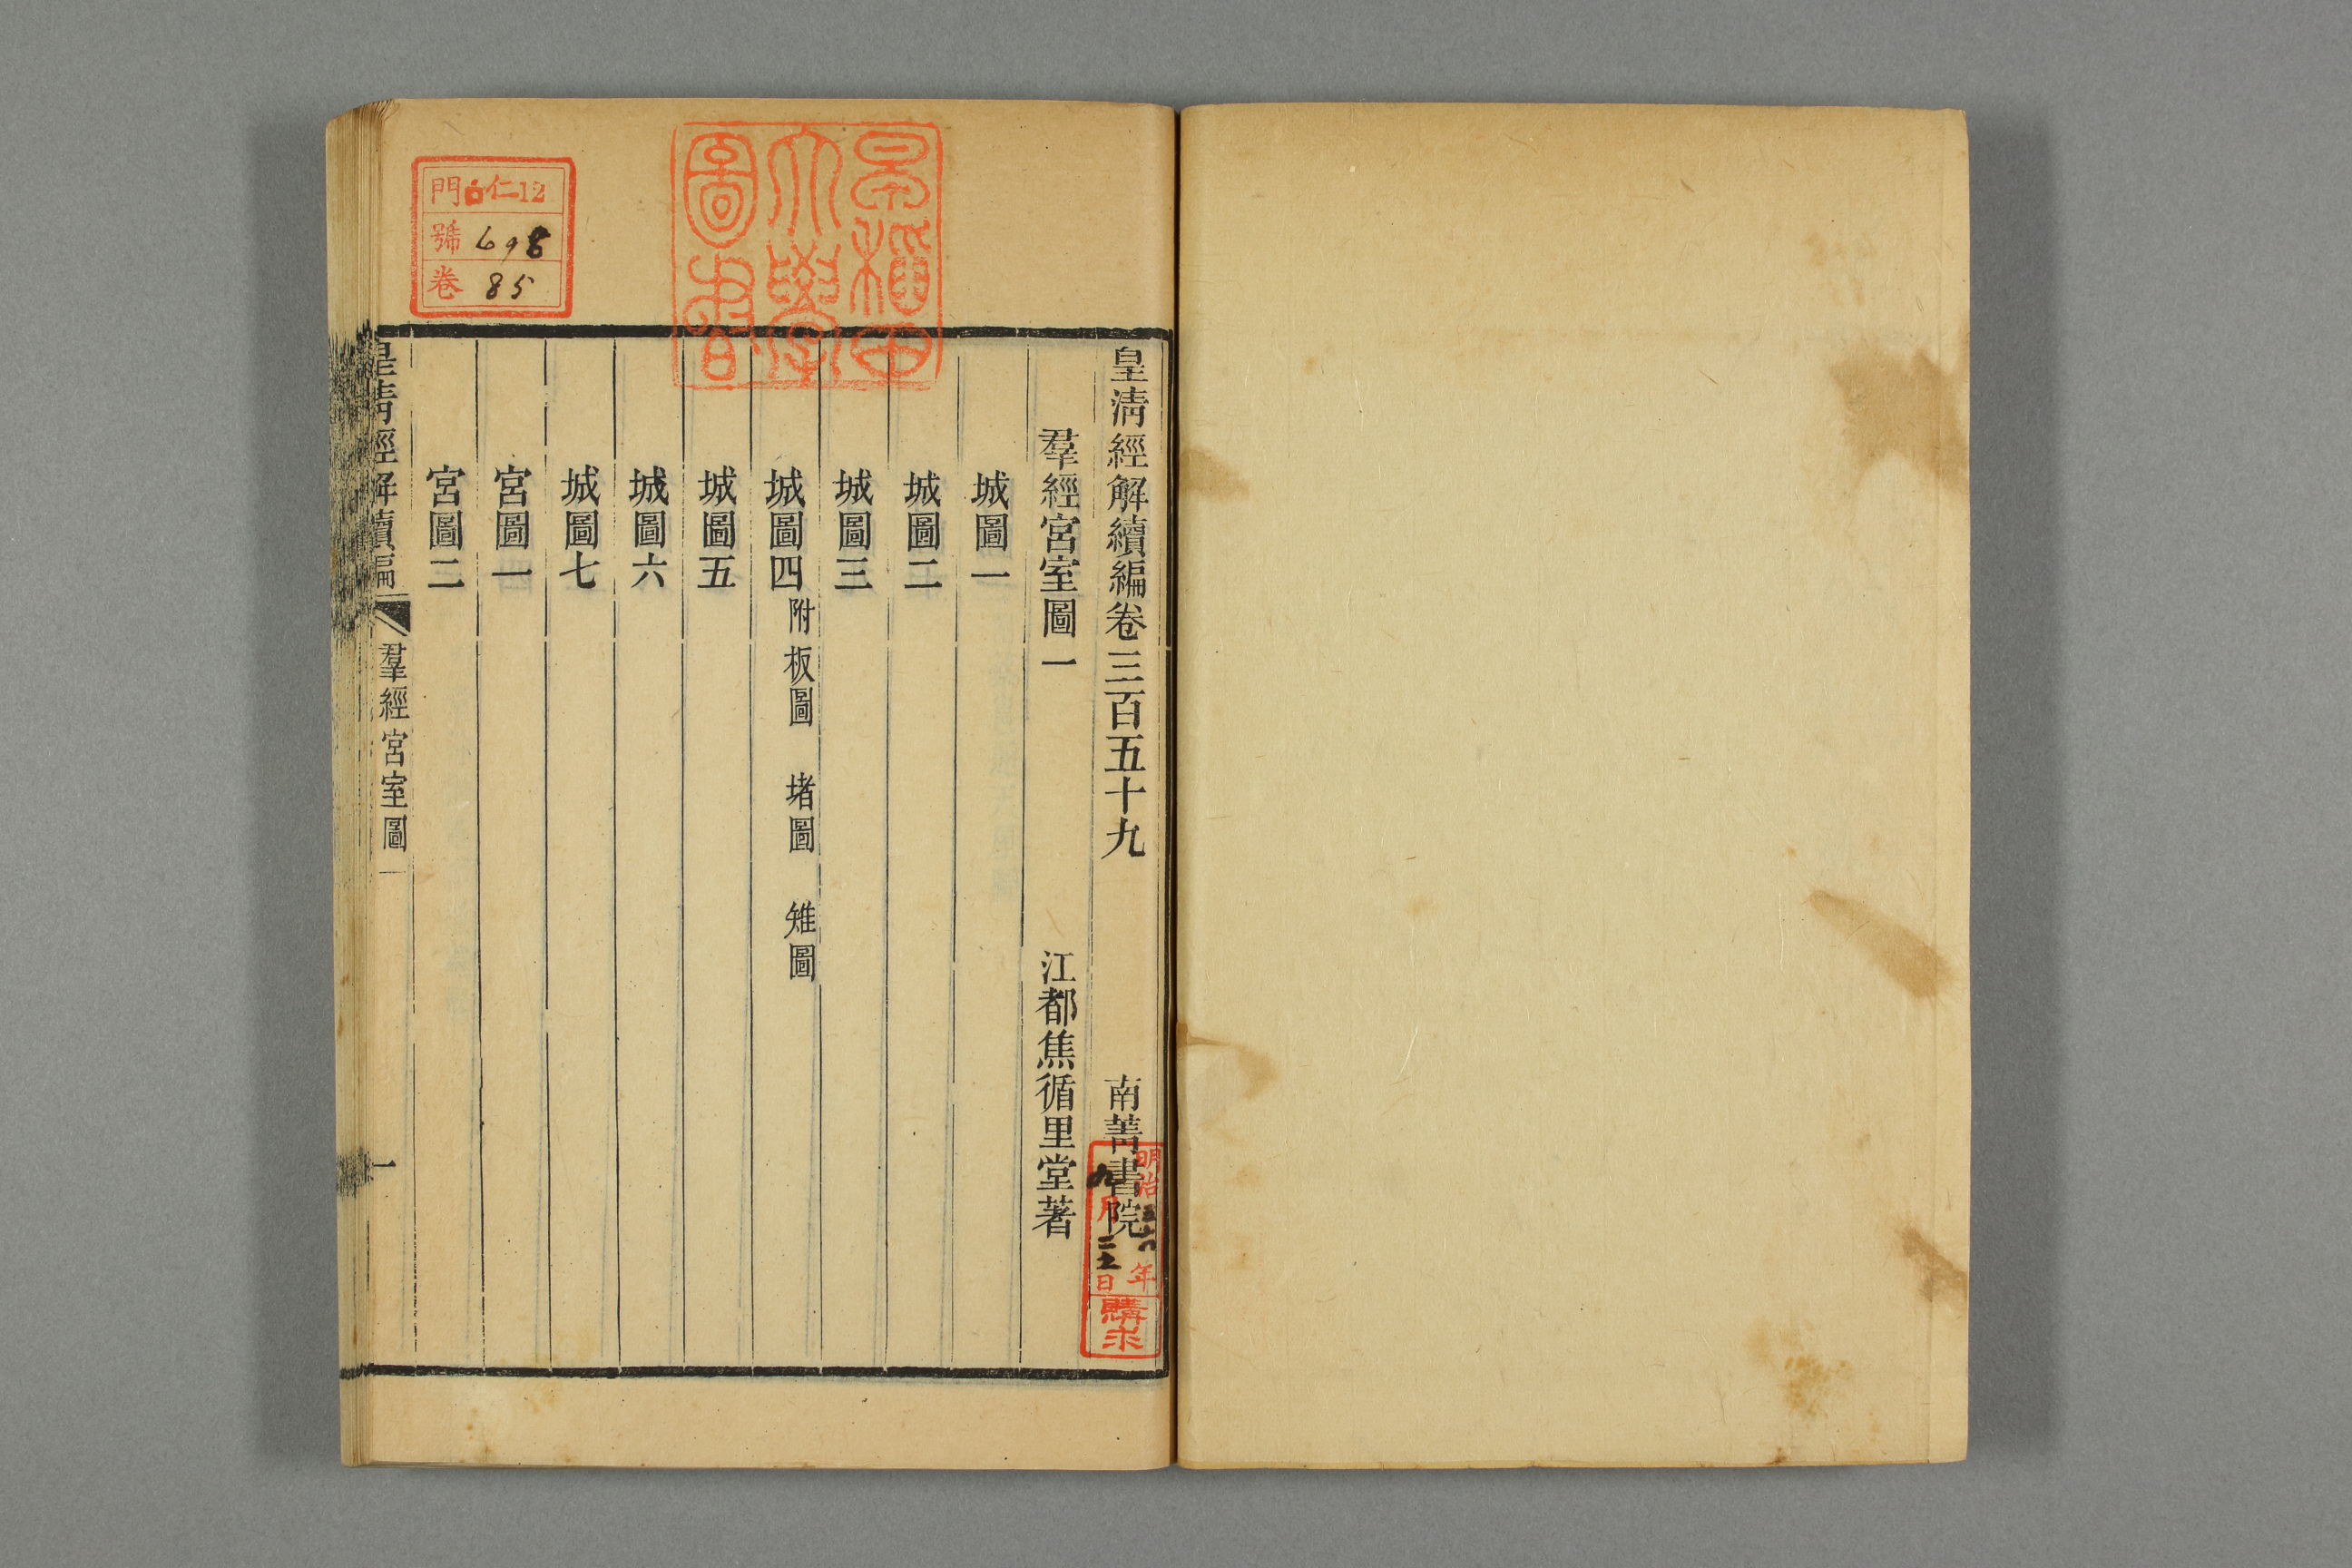 皇清經解續編卷三百五十九 南菁書院
羣經宮室圖一 江都焦循里堂著
城圖一
城圖二
城圖三
城圖四 附板圖 堵圖 雉圖
城圖五
城圖六
城圖七
宮圖一
宮圖二
皇清經解續編 羣經宮室圖一 一
早稲田
大學
圖書
門 仁12
號 698
卷 85
明治 年
九月 日
購求